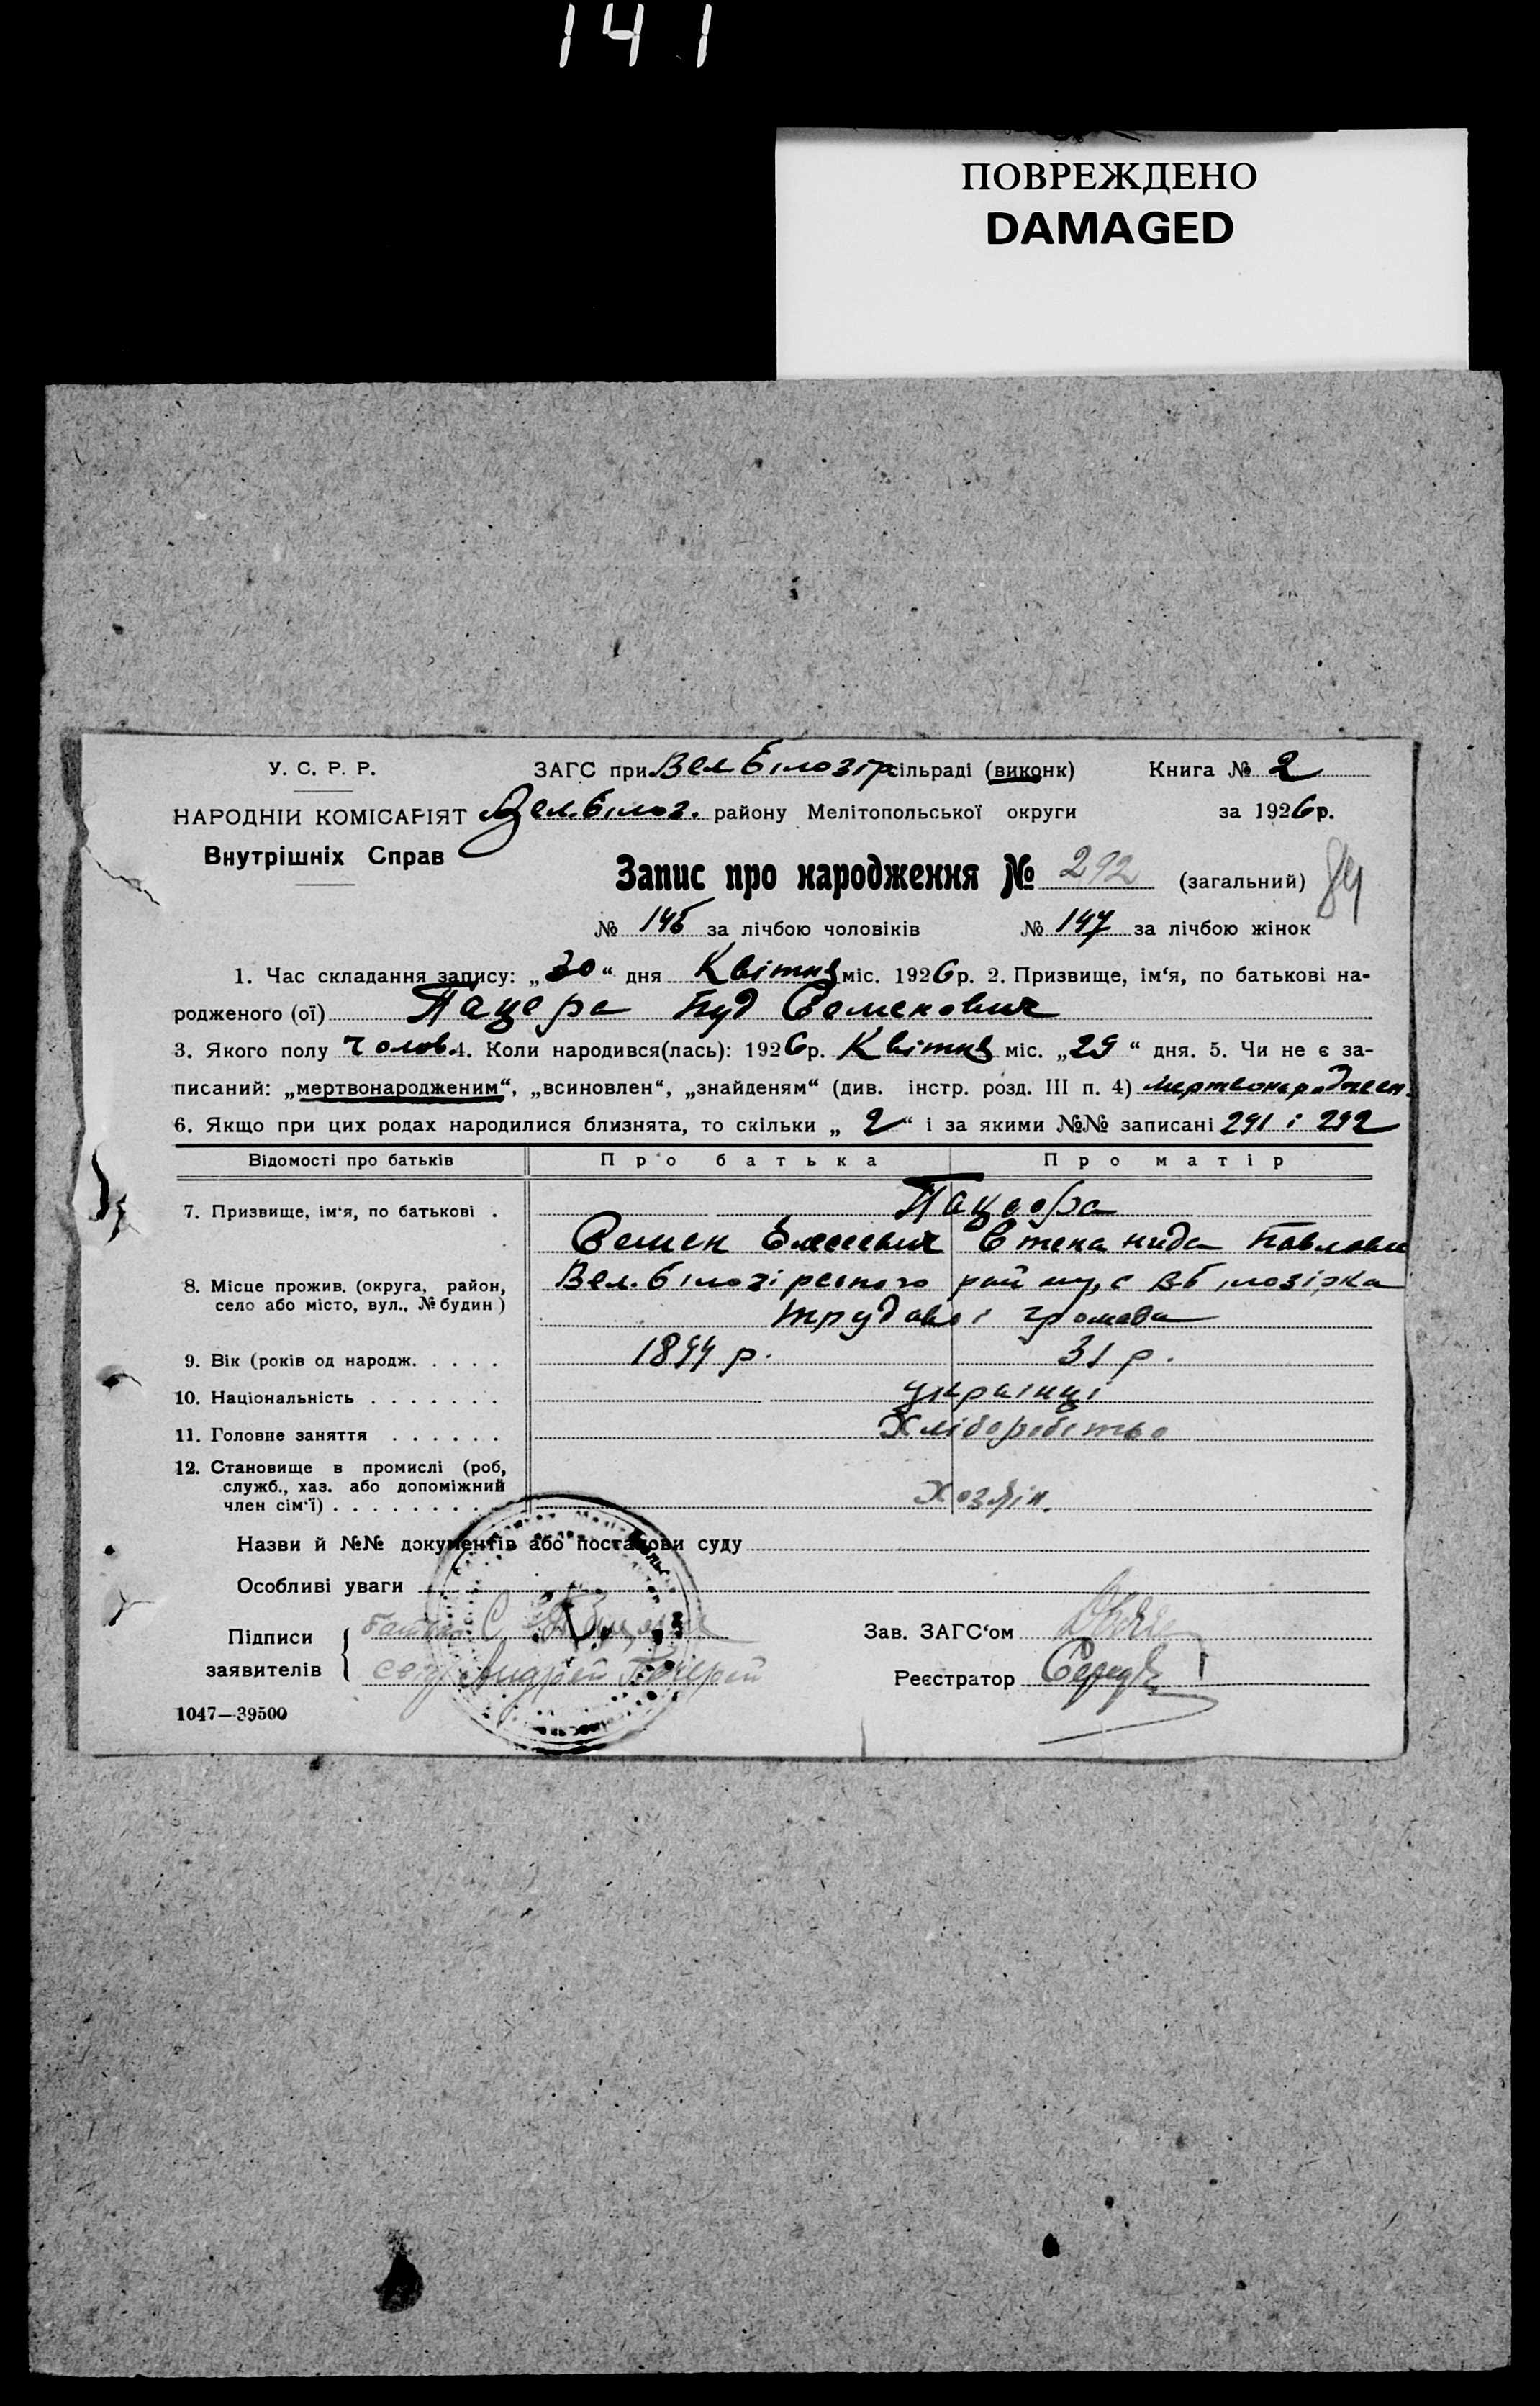 141
ПОВРЕЖДЕНО
DAMAGED
У. С. Р. Р. ЗАГС при Вел Білозір сільраді (виконк) Книга № 2
НАРОДНІЙ КОМІСАРІЯТ Вел. Білоз. району Мелітопольської округи за 1926 р.
Внутрішніх Справ
Запис про народження № 292 (загальний) 84
№ 145 за лічбою чоловіків № 147 за лічбою жінок
1. Час складання запису: „30“ дня Квітня міс. 1926 р. 2. Призвище, ім‘я, по батькові на-
родженого (ої) Пацера Семенович
3. Якого полу Чолов. 4. Коли народився(лась): 1926 р. Квітня міс. „29“ дня. 5. Чи не є за-
писаний: „мертвонародженим“, „всиновлен“, „знайденям“ (див. інстр. розд. III п. 4) Мертвонароджен.
6. Якщо при цих родах народилися близнята, то скільки „2“ і за якими №№ записані 291 і 292
Відомості про батьків Про батька Про матір
7. Призвище, ім‘я, по батькові . Пацера
Семен Павловн
8. Місце прожив. (округа, район, село або місто, вул., № будин) Вел. Білозірського району, с ВБілозірка
Трудової громада
9. Вік (років од народж. . . . . 1894 р. 31 р.
10. Національність . . . . . . . українці
11. Головне заняття . . . . . . Хліборобство
12. Становище в промислі (роб,
служб., хаз. або допоміжний
член сім‘ї) . . . . . . . . . Хозяін.
Назви й №№ документів або постанови суду
Особливі уваги
Підписи заявителів батько С
Андрій
Зав. ЗАГС‘ом
Реєстратор
1047—39500